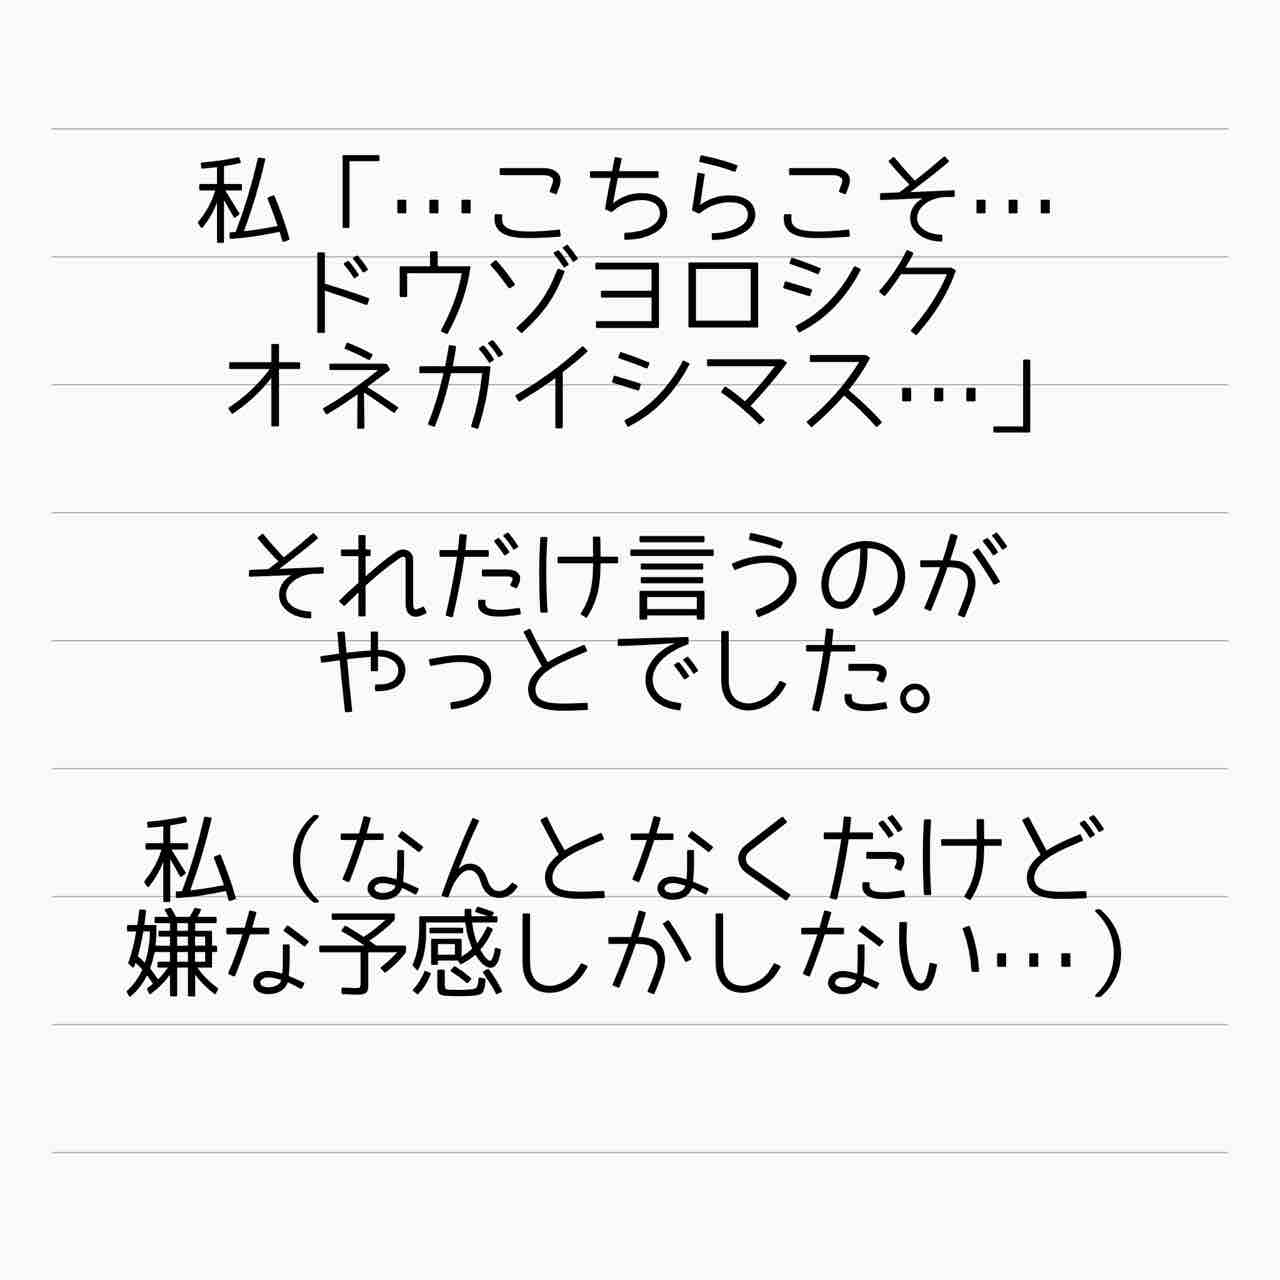 私「…こちらこそ…
ドウゾヨロシク
オネガイシマス…」
それだけ言うのが
やっとでした。
私（なんとなくだけど
嫌な予感しかしない…）